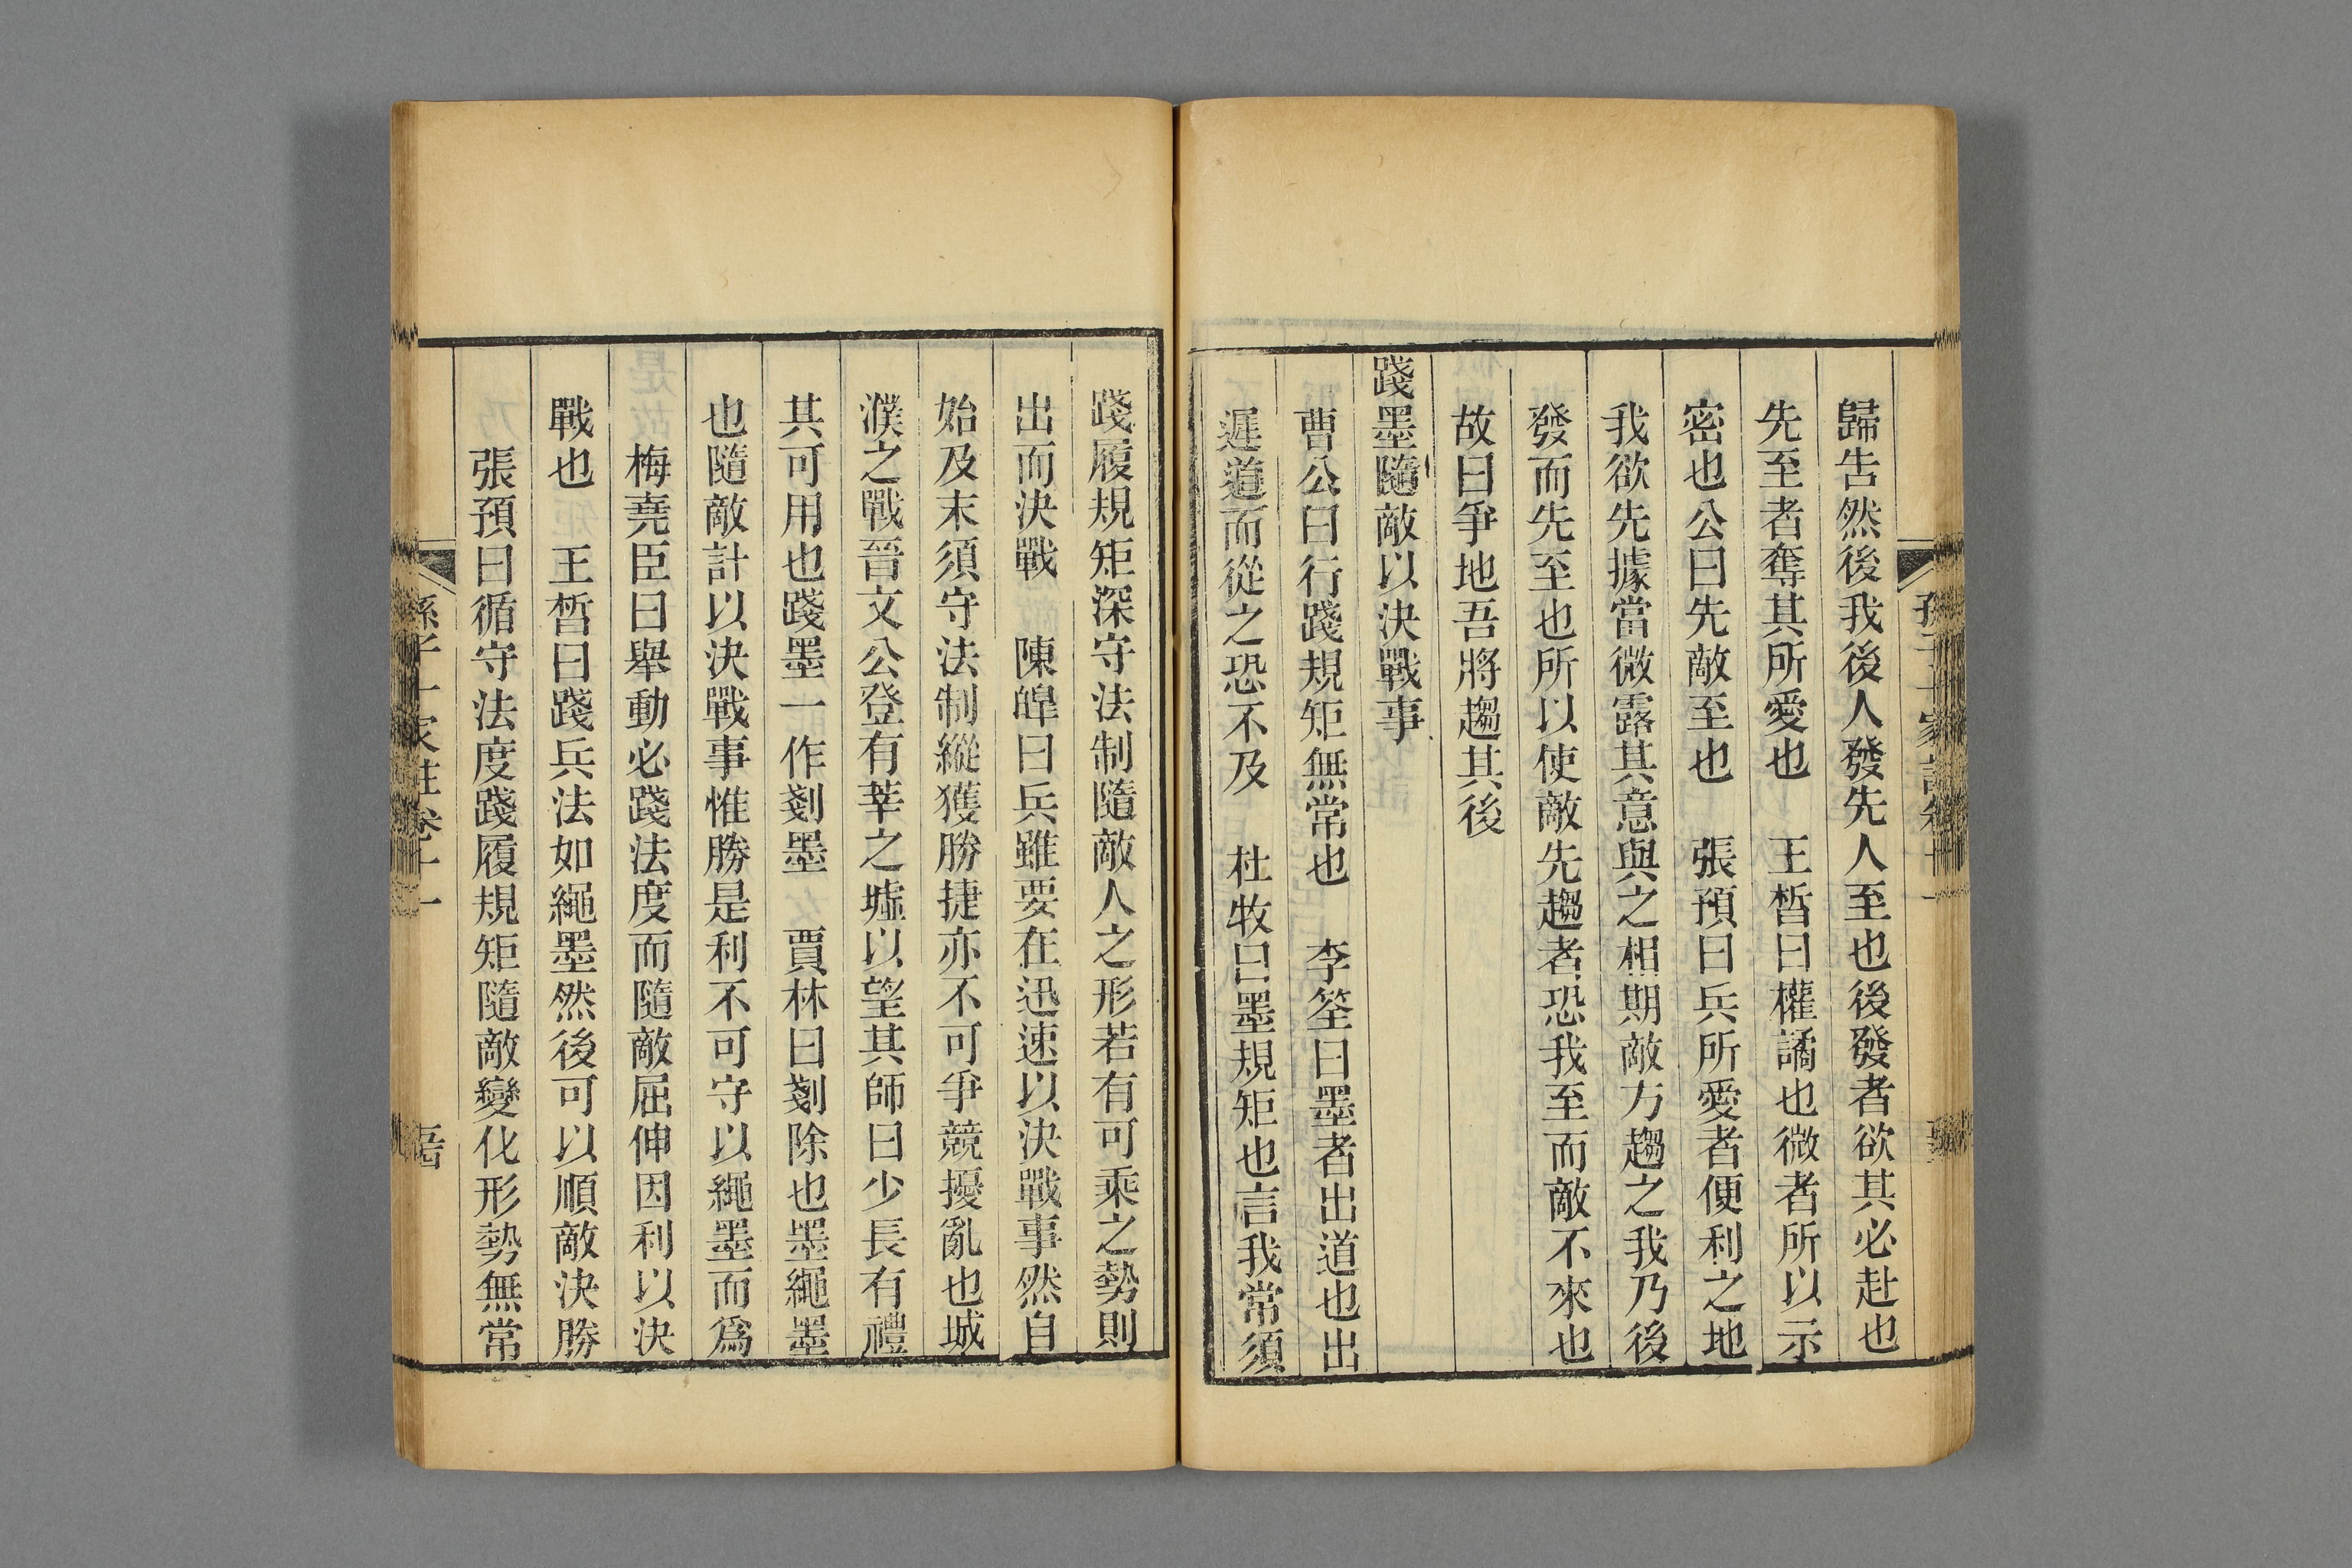 歸告然後我後人發先人至也後發者欲其必赴也
先至者奪其所愛也　王晳曰權譎也微者所以示
密也公曰先敵至也　張預曰兵所愛者便利之地
我欲先據當微露其意與之相期敵方趨之我乃後
發而先至也所以使敵先趨者恐我至而敵不來也
故曰爭地吾將趨其後
踐墨隨敵以決戰事
曹公曰行踐規矩無常也　李筌曰墨者出道也出
遲道而從之恐不及　杜牧曰墨規矩也言我常須
踐履規矩深守法制隨敵人之形若有可乘之勢則
出而決戰　陳皥曰兵雖要在迅速以決戰事然自
始及末須守法制縱獲勝捷亦不可爭競擾亂也城
濮之戰晉文公登有莘之墟以望其師曰少長有禮
其可用也踐墨一作剗墨　賈林曰剗除也墨繩墨
也隨敵計以決戰事惟勝是利不可守以繩墨而爲
梅堯臣曰舉動必踐法度而隨敵屈伸因利以決
戰也　王晳曰踐兵法如繩墨然後可以順敵決勝
張預曰循守法度踐履規矩隨敵變化形勢無常
孫子十家註卷十一